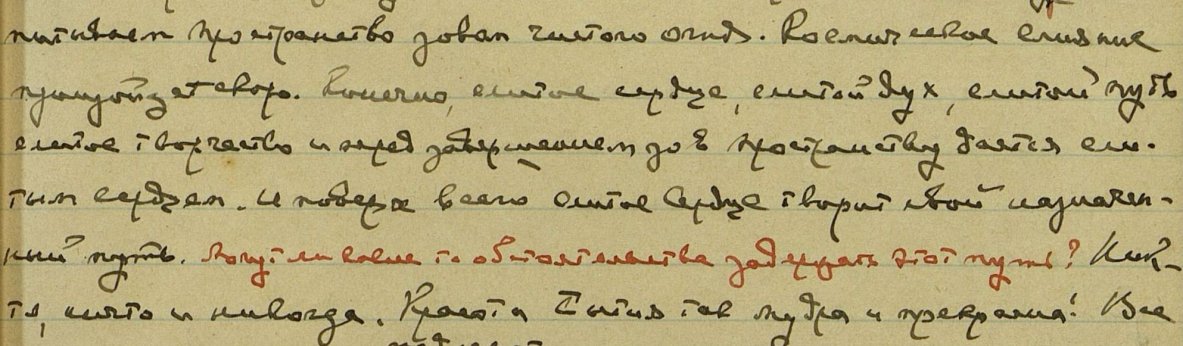 питываем пространство зовом чистого огня. Космическое слияние
произойдет скоро. Конечно, слитое сердце, слитой дух, слитой путь
слитое творчество и перед завершением зов пространству дается сли-
тым сердцем. И поверх всего слитое сердце творит свой назначен-
ный путь. Могут ли какие то обстоятельства задержать этот путь? Ник-
то, ничто и никогда. Красота Бытия так мудра и прекрасна! Все